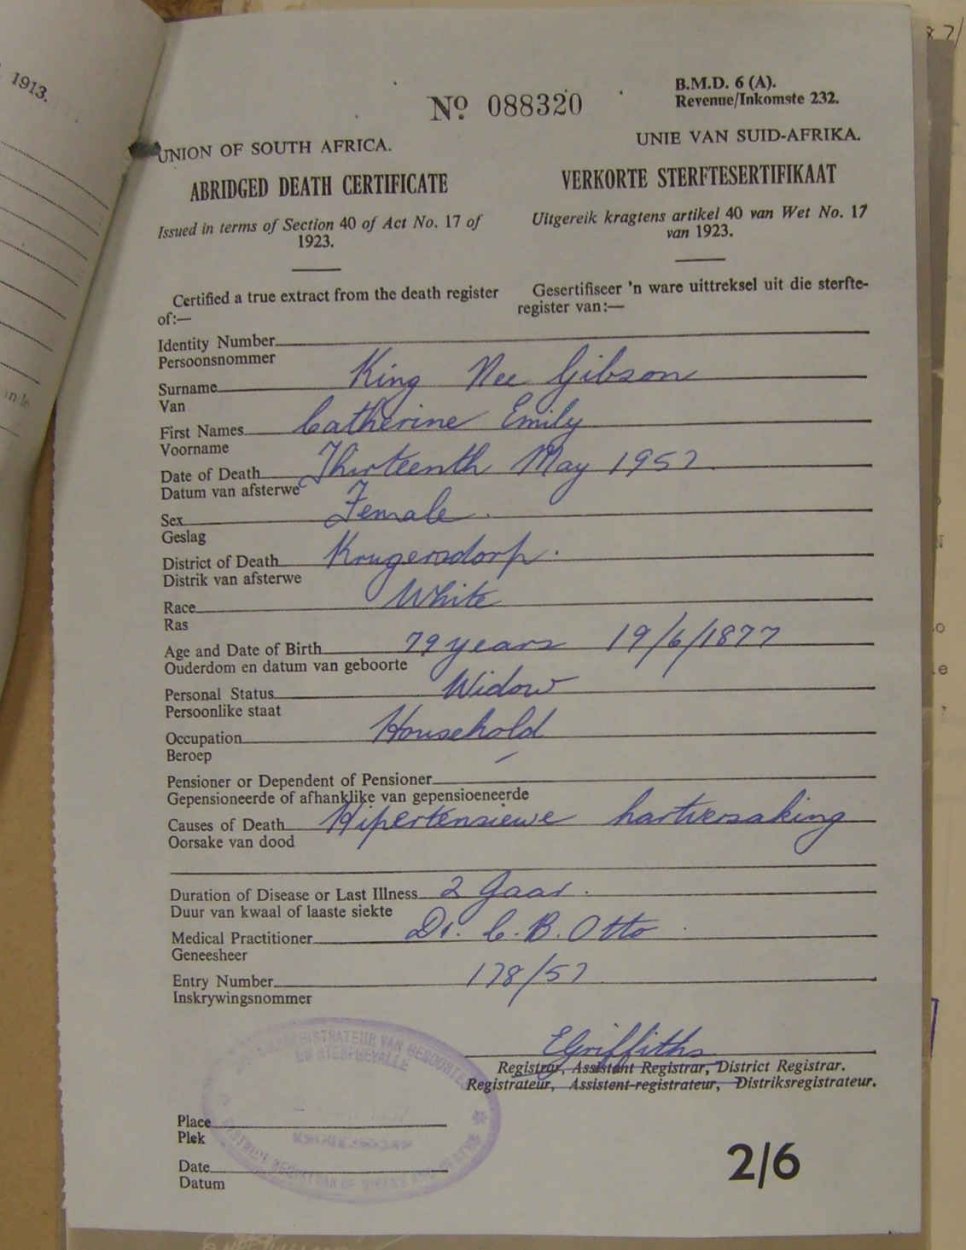 1913.
Nº 088320
B.M.D. 6 (A).
Revenue/Inkomste 232.
UNION OF SOUTH AFRICA.
UNIE VAN SUID-AFRIKA.
ABRIDGED DEATH CERTIFICATE
VERKORTE STERFTESERTIFIKAAT
Issued in terms of Section 40 of Act No. 17 of
1923.
Uitgereik kragtens artikel 40 van Wet No. 17
van 1923.
Certified a true extract from the death register
of:—
Gesertifiseer 'n ware uittreksel uit die sterfte-
register van:—
Identity Number
Persoonsnommer
Surname King Nee Gibson
Van
First Names Catherine Emily
Voorname
Date of Death Thirteenth May 1957
Datum van afsterwe
Sex Female.
Geslag
District of Death Krugersdorp.
Distrik van afsterwe
Race White
Ras
Age and Date of Birth 79 years 19/6/1877
Ouderdom en datum van geboorte
Personal Status Widow
Persoonlike staat
Occupation Household
Beroep
Pensioner or Dependent of Pensioner
Gepensioneerde of afhanklike van gepensioeneerde
Causes of Death Hipertensiewe hartversaking
Oorsake van dood
Duration of Disease or Last Illness 2 Jaar.
Duur van kwaal of laaste siekte
Medical Practitioner Dr. C. B. Otto
Geneesheer
Entry Number 178/57
Inskrywingsnommer
EGriffiths
Registrar, Assistant Registrar, District Registrar.
Registrateur, Assistent-registrateur, Distriksregistrateur.
Place
Plek
Date
Datum
2/6